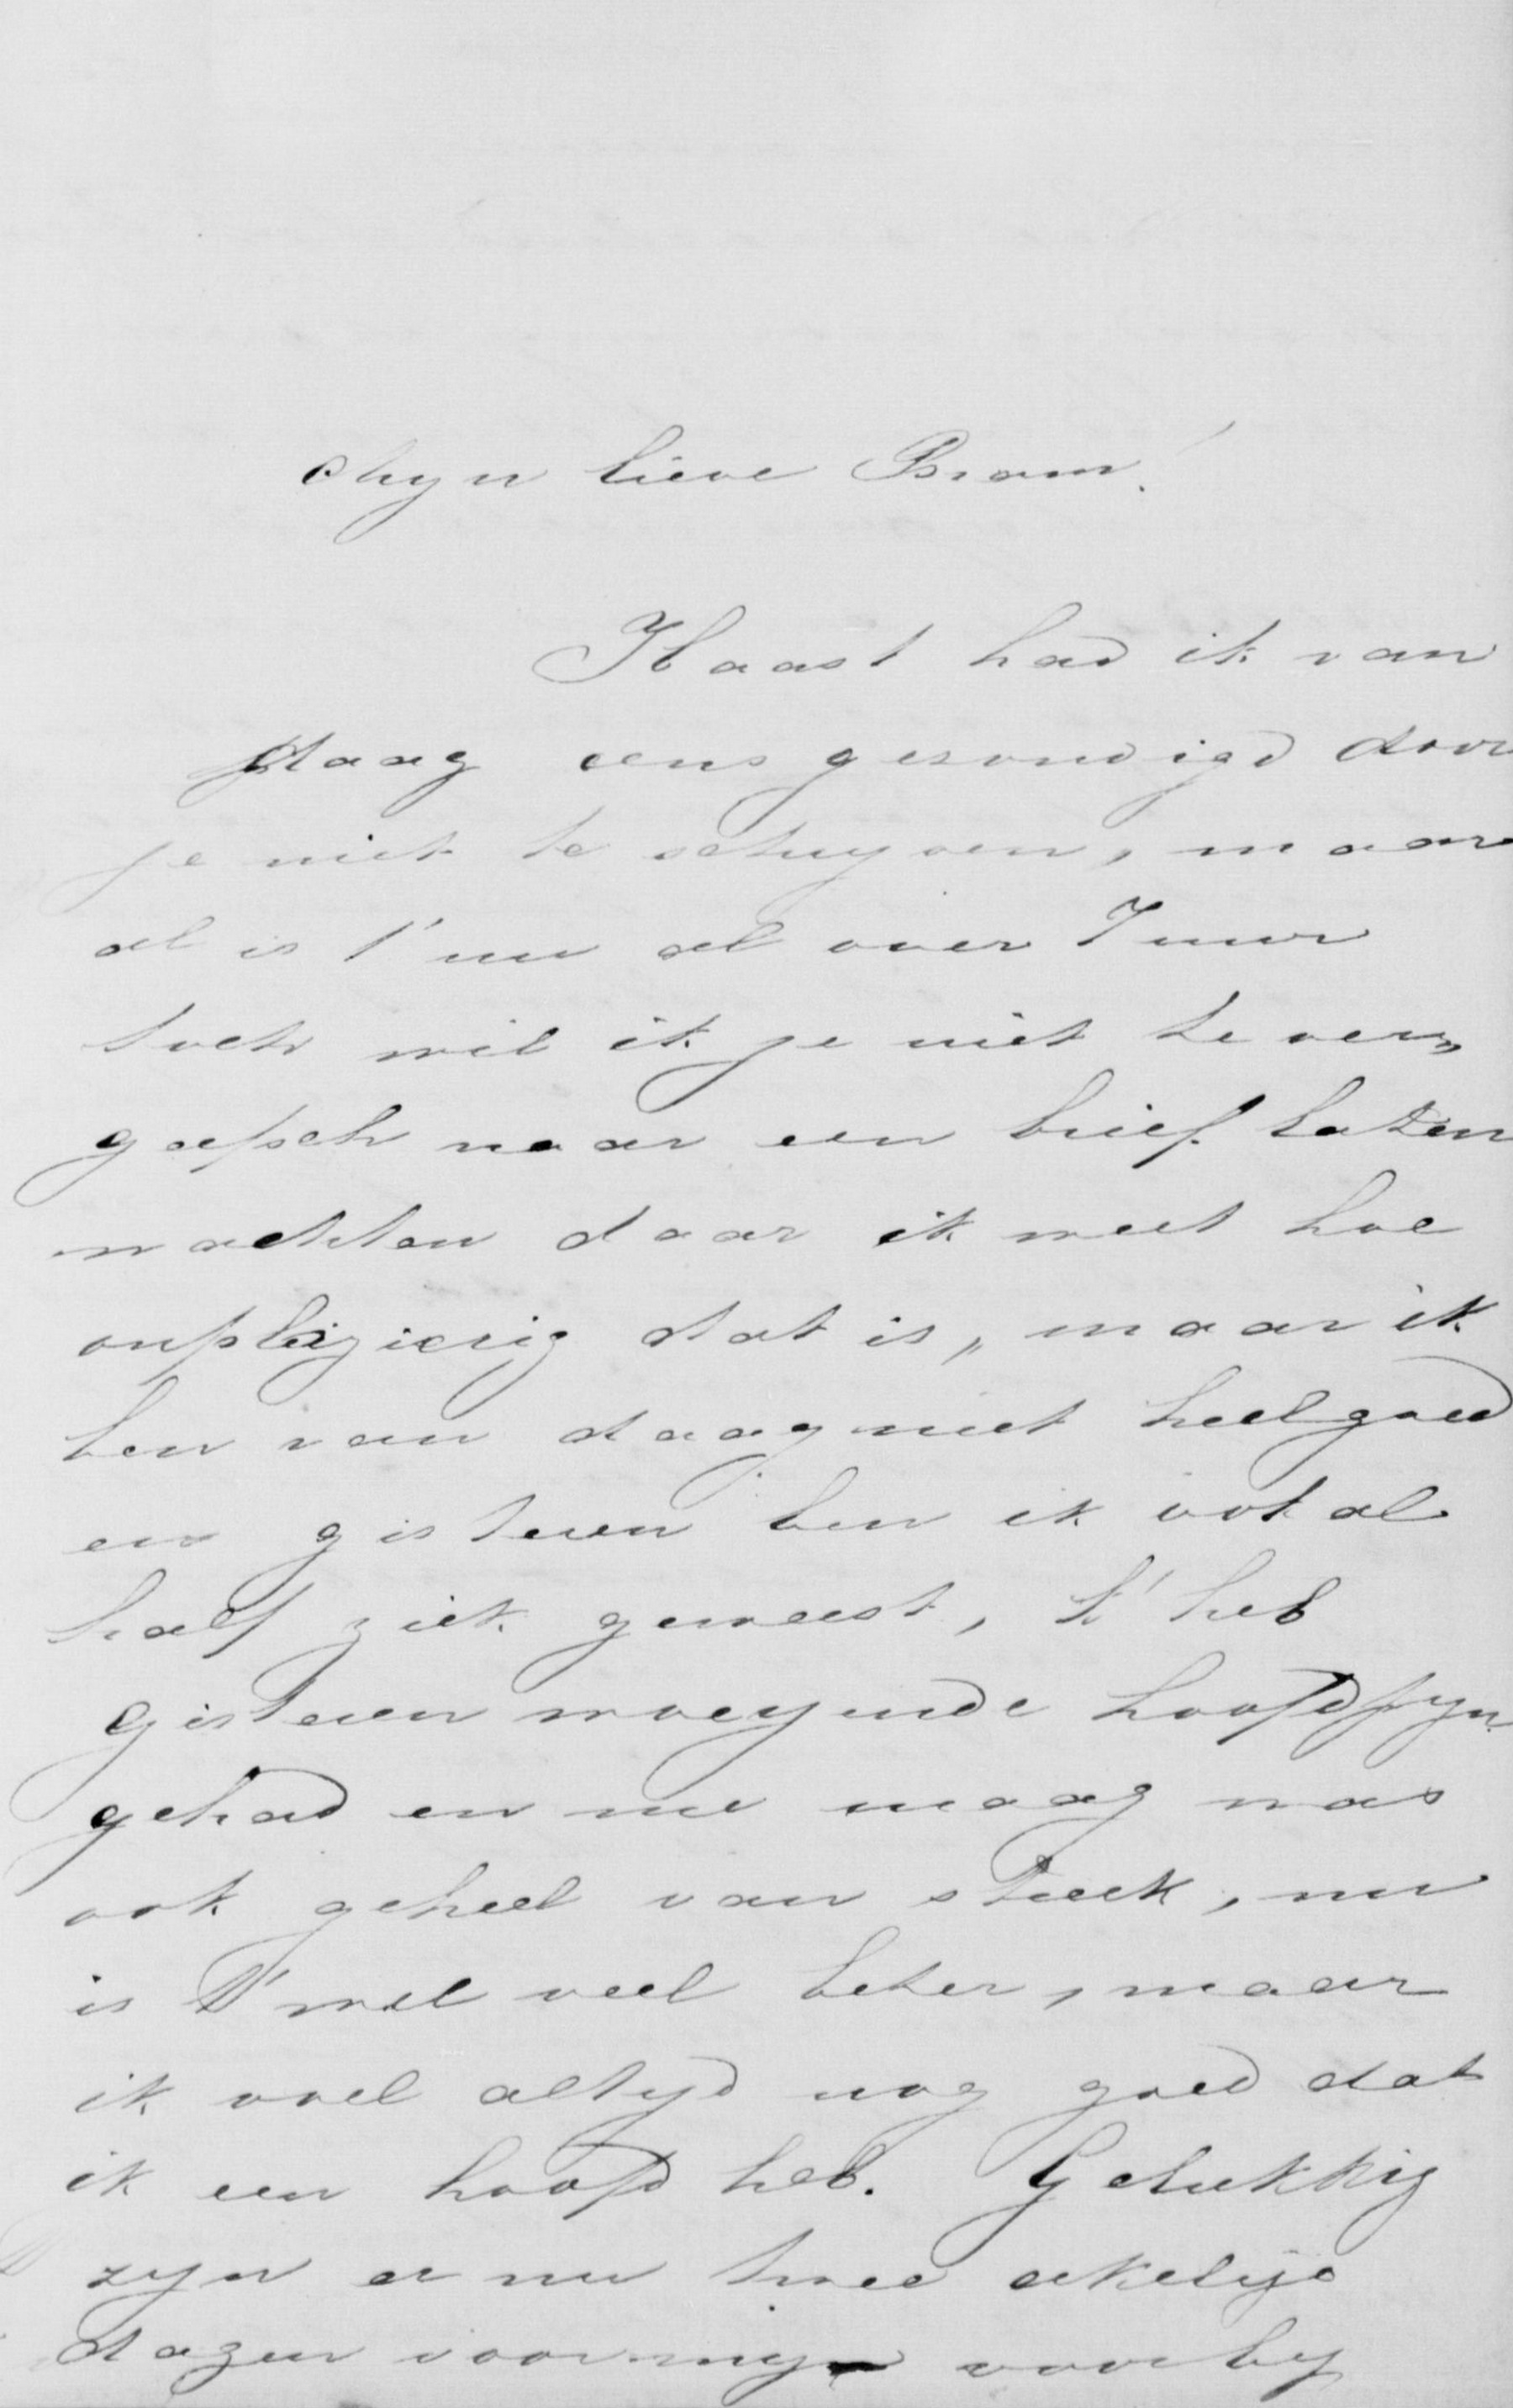 Myn lieve Bram!
Haast had ik van
daag eens gezondigd door
je niet te schryven, maar
al is t' nu al over 7 uur
toch wil ik je niet te ver„
gefsch naar een brief laten
wachten daar ik weet hoe
onpleizierig dat is, maar ik
ben van daag niet heel goed
en gisteren ben ik ook al
half ziek geweest, k' heb
gisteren woeyende hoofdpyn
gehad en me maag was
ook geheel van streek, nu
is t' wel veel beter, maar
ik voel altyd nog goed dat
ik een hoofd heb. Gelukkig
zyn er nu twee akelige
dagen voor my voorby